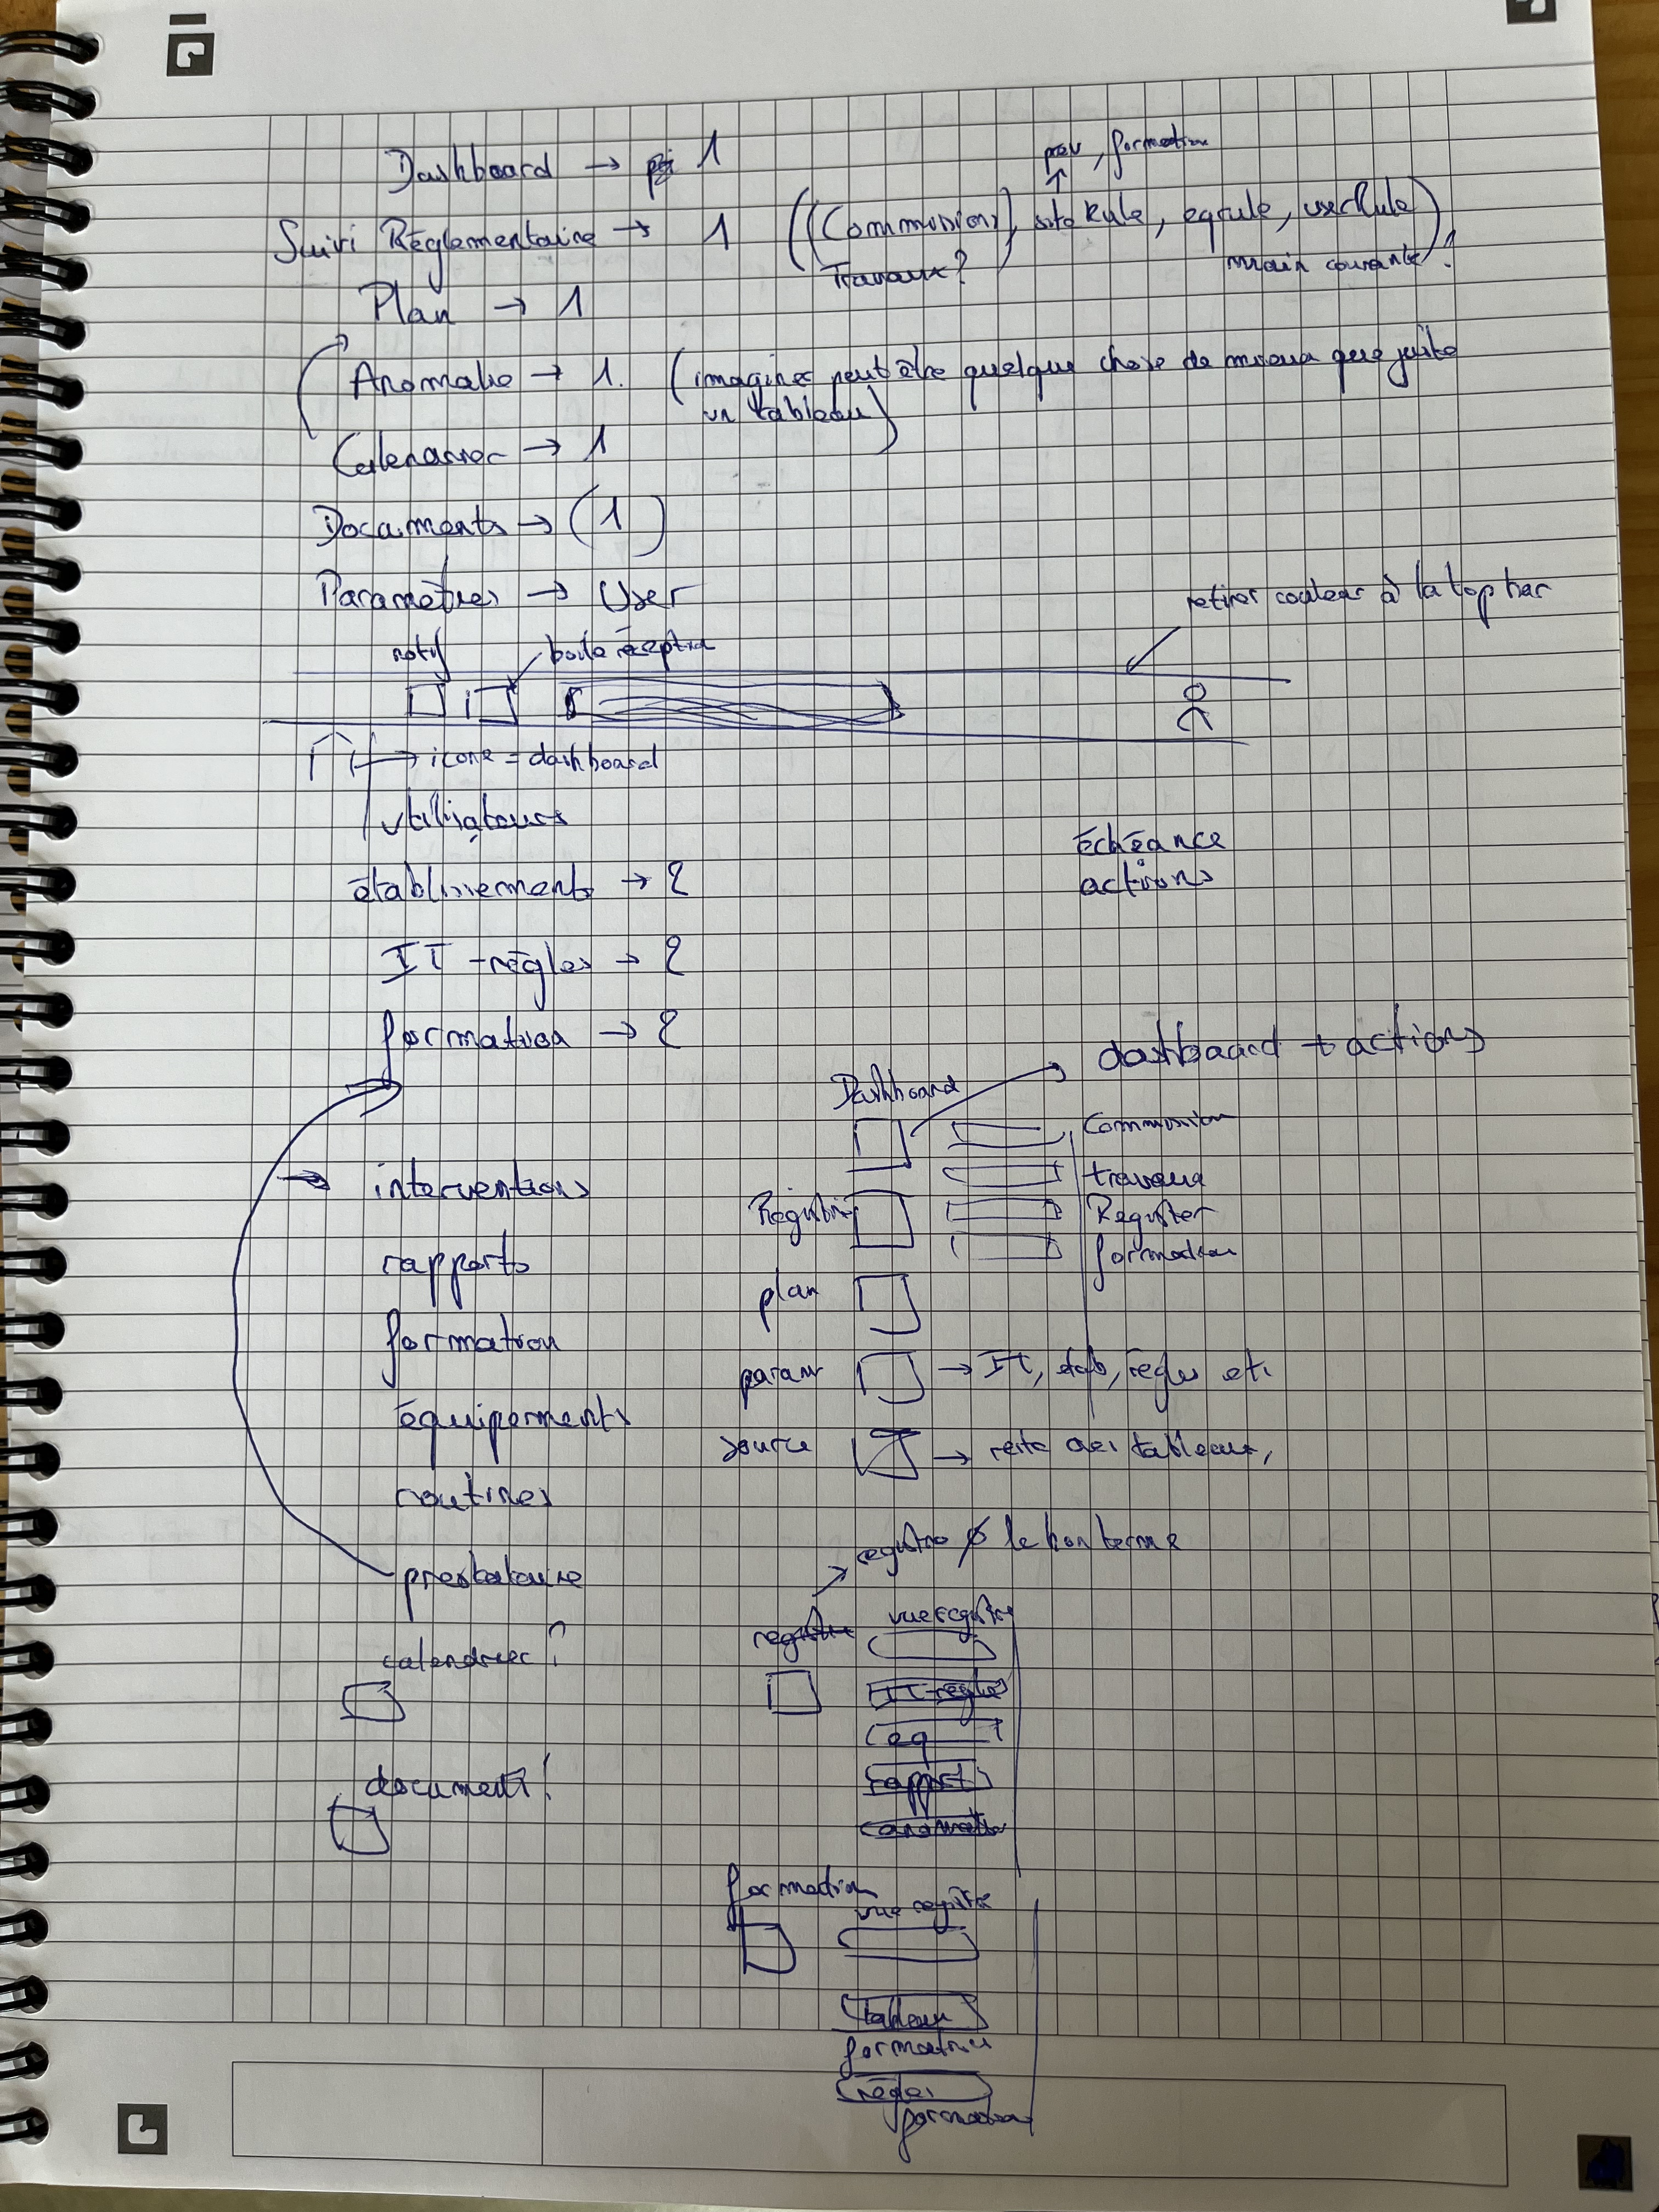 Dashboard → 1
prev, formation
Suivi Réglementaire → 1 ((Commission), site Rule, eqrule, userRule)
Travaux? main courante!
Plan → 1
Anomalie → 1. (imaginer peut être quelque chose de mieux que juste
un tableau)
Calendrier → 1
Documents → (1)
Paramètres → User
retirer couleur à la top bar
notif boite réception
→ icone = dashboard
utilisateurs
échéance
actions
établissements → 2
IT - règles → 2
formation → 2
dashboard + actions
Dashboard
Commission
→ interventions
travaux
Registre Register
formation
rapports
plan
formation
param → IT, etab, règles etc
équipements
source → reste des tableaux,
routines
registre ∅ le bon terme
prestataire
registre vue registre
calendrier?
IT-règles
eq
rapport
document!
anomalie
formation
vue registre
tableau
formation
règles
formation